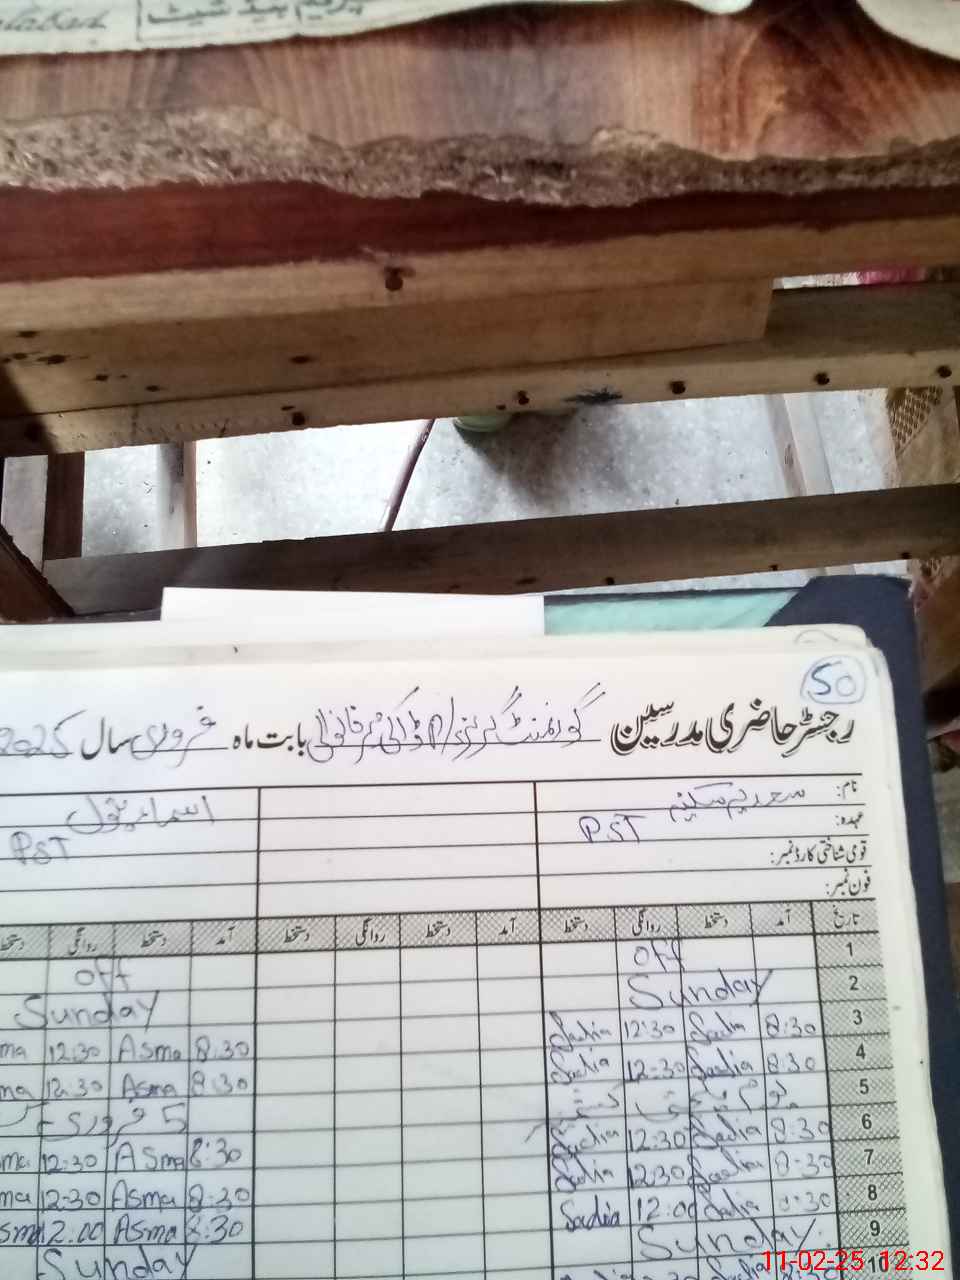 پرفیم ہیڈ شیٹ
50
رجسٹر حاضری مدرسین گورنمنٹ گرلز بابت ماہ فروری سال 2025
نام: سعدیہ سلیم
عہدہ: PST PST
قومی شناختی کارڈ نمبر:
فون نمبر:
تاریخ آمد دستخط روانگی دستخط آمد دستخط روانگی دستخط آمد دستخط روانگی دستخط
1 off off
2 Sunday Sunday
3 8:30 Sadia 12:30 Sadia 8:30 Asma 12:30
4 8:30 Sadia 12:30 Sadia 8:30 Asma 12:30
5 یوم کشمیر 5 فروری
6 8:30 Sadia 12:30 Sadia 8:30 Asma 12:30
7 8:30 Sadia 12:30 Sadia 8:30 Asma 12:30
8 8:30 Sadia 12:00 Sadia 8:30 Asma 12:00
9 Sunday Sunday
10
11-02-25 12:32